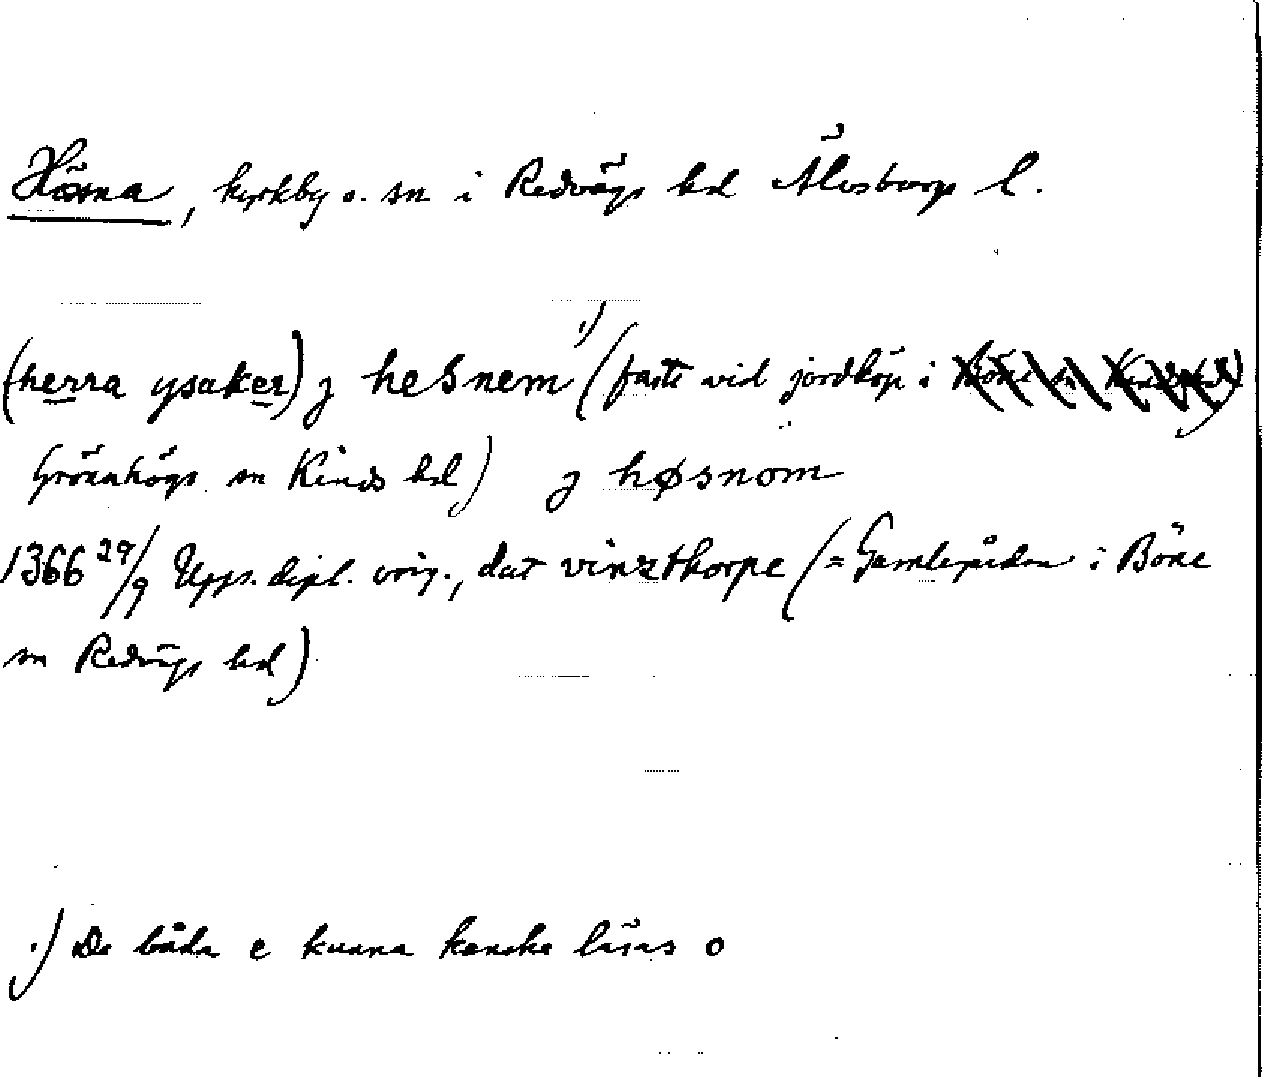 Hösna, kyrkby o. sn i Redvägs hd Älvsborgs l.
(herra ysaker) j hesnem 1) (faste vid jordköp i
Grönahögs sn Kinds hd) j høsnom
1366 29/9 Upps. dipl. orig., dat vinzthorpe (= Gamlegården i Böne
sn Redvägs hd)
1) De båda e kunna kanske läsas o